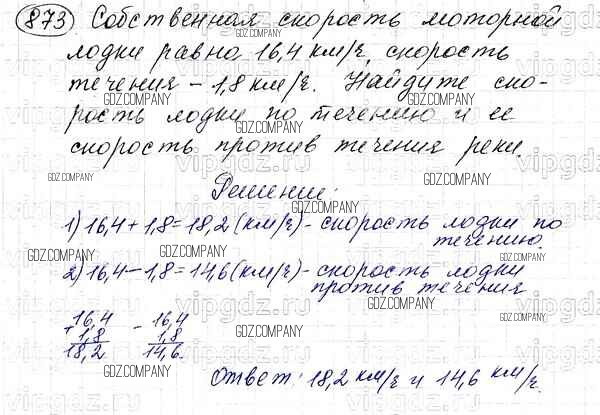 873 Собственная скорость моторной
лодки равна 16,4 км/ч, скорость
течения – 1,8 км/ч. Найдите ско-
рость лодки по течению и ее
скорость против течения реки
Решение:
1) 16,4 + 1,8 = 18,2 (км/ч) - скорость лодки по
течению.
2) 16,4 – 1,8 = 14,6 (км/ч) - скорость лодки
против течения
16,4 – 16,4
+ 1,8 1,8
18,2 14,6
Ответ: 18,2 км/ч и 14,6 км/ч.
GDZ.COMPANY
vipgdz.ru